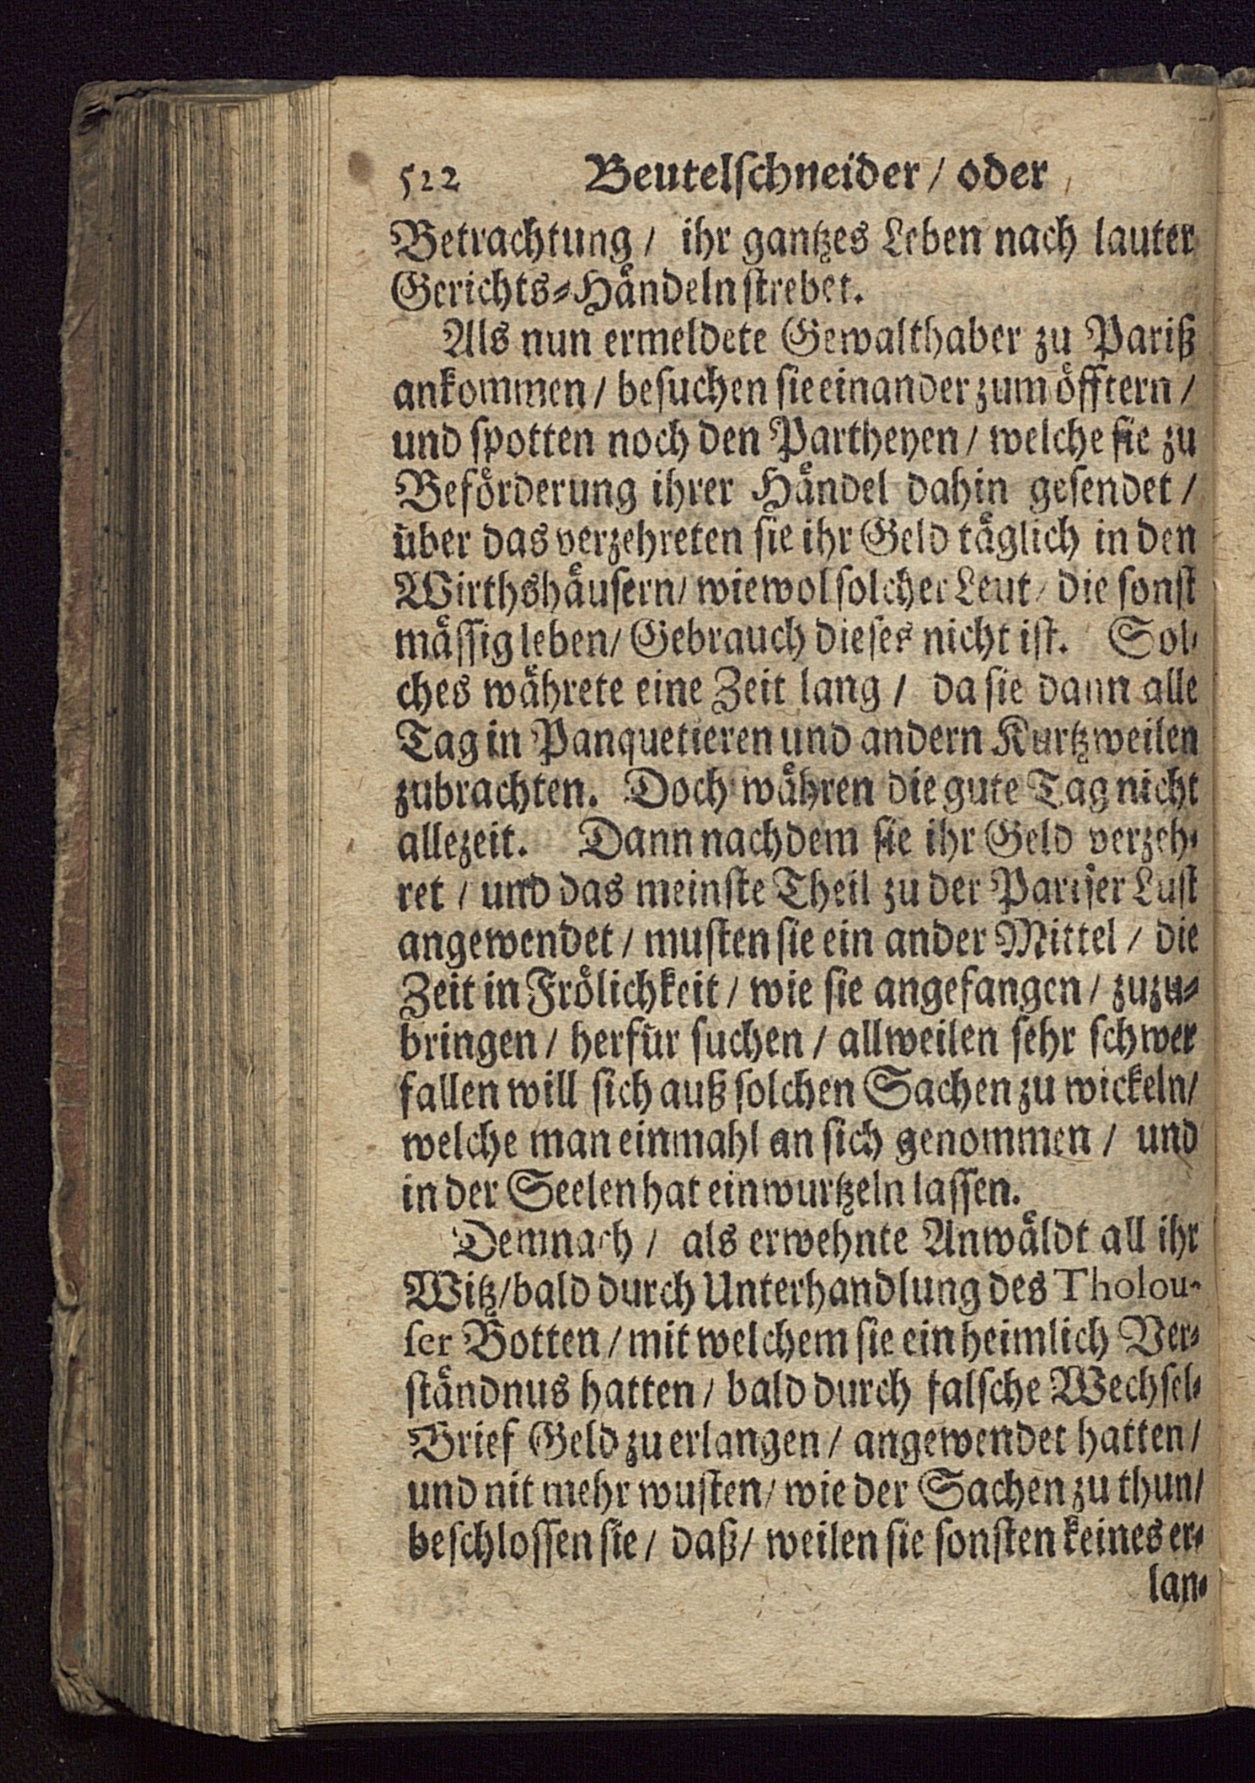 522 Beutelschneider / oder
Betrachtung / ihr gantzes Leben nach lauter
Gerichts-Händeln strebet.
Als nun ermeldete Gewalthaber zu Pariß
ankommen / besuchen sie einander zum öfftern /
und spotten noch den Partheyen / welche sie zu
Beförderung ihrer Händel dahin gesendet /
über das verzehreten sie ihr Geld täglich in den
Wirthshäusern / wiewol solcher Leut / die sonst
mässig leben / Gebrauch dieses nicht ist. Sol-
ches währete eine Zeit lang / da sie dann alle
Tag in Panquetieren und andern Kurtzweilen
zubrachten. Doch währen die gute Tag nicht
allezeit. Dann nachdem sie ihr Geld verzeh-
ret / und das meinste Theil zu der Pariser Lust
angewendet / musten sie ein ander Mittel / die
Zeit in Frölichkeit / wie sie angefangen / zuzu-
bringen / herfür suchen / allweilen sehr schwer
fallen will sich auß solchen Sachen zu wickeln /
welche man einmahl an sich genommen / und
in der Seelen hat einwurtzeln lassen.
Demnach / als erwehnte Anwäldt all ihr
Witz / bald durch Unterhandlung des Tholou-
ser Botten / mit welchem sie ein heimlich Ver-
ständnus hatten / bald durch falsche Wechsel-
Brief Geld zu erlangen / angewendet hatten /
und nit mehr wusten / wie der Sachen zu thun /
beschlossen sie / daß / weilen sie sonsten keines er-
lan-